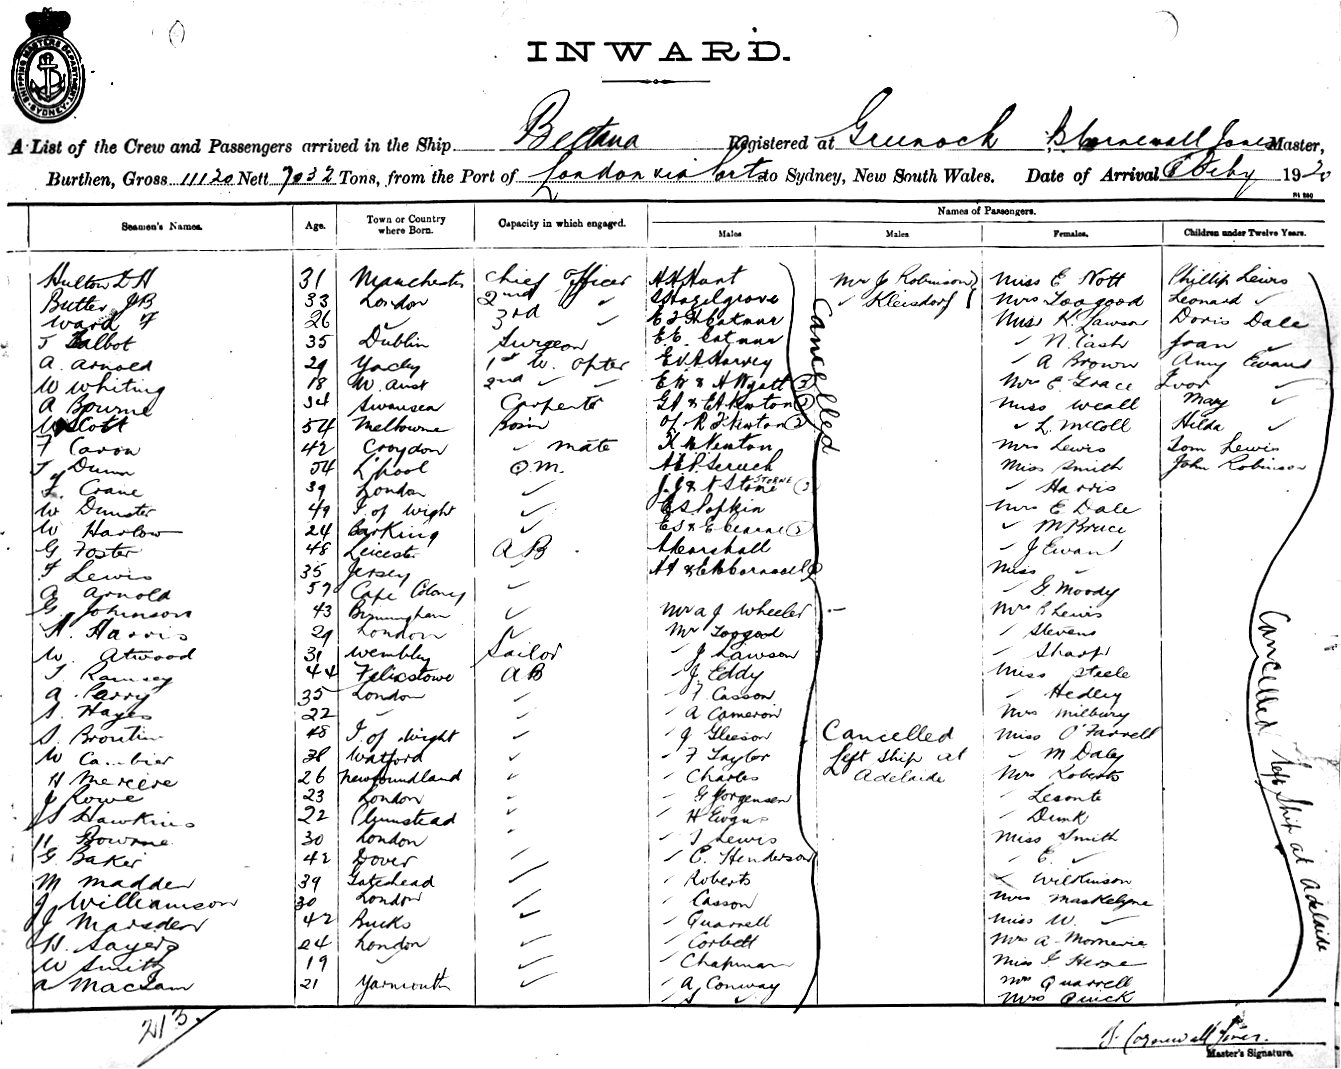 SHIPPING MASTERS DEPARTMENT SYDNEY
INWARD.
A List of the Crew and Passengers arrived in the Ship Beltana Registered at Greenock B Cornewall Jones Master,
Burthen, Gross 11120 Nett 7032 Tons, from the Port of London via Ports to Sydney, New South Wales. Date of Arrival Feby 1920
Names of Passengers.
Seamen's Names. Age. Town or Country where Born. Capacity in which engaged. Males Males Females. Children under Twelve Years.
Hulton D H 31 Manchester Chief Officer H H Hunt Mr J Robinson Miss E Nott Phillip Lewis
Butter J B 33 London 2nd " S Hazelgrove " Kleisdorf Mrs Toogood Leonard "
Ward F 26 " 3rd " Miss K Lawson Doris Dale
T Talbot 35 Dublin Surgeon " N. Cash Joan "
A. Arnold 29 Yaxley 1st W. Opter E V A Harvey " A Brown Amy Evans
W Whiting 18 W. Aust 2nd " " E W & A Wyatt (2) Mrs E Grace Ivor "
A Bourne 34 Swansea Carpenter G A & E A Newton Miss Weall Mary "
W Scott 54 Melbourne Bosun of R F Newton " L. McColl Hilda "
F Caron 42 Croydon " mate K M Newton Mrs Lewis Tom Lewis
T Dunn 54 L'pool Q.M. Miss Smith John Robinson
L. Crane 39 London " J. J & N Stone STORNE " Harris
W Dunster 49 I. of Wight " E S Popkin Mrs E Dale
W Harlow 24 Barking " E S & E Cearne " M Bruce
G Foster 48 Leicester A B A Pearshall " J Ewan
F Lewis 35 Jersey " Miss "
A Arnold 57 Cape Colony " " G Moody
G Johnson 43 Birmingham " Mr A J Wheeler Mrs P Lewis
A. Harris 29 London " Mr Toogood " Stevens
W. Atwood 31 Wembley Sailor " J Lawson " Sharp
T Ramsey 44 Felixstowe A B " J Eddy Miss Steele
A. Parry 35 London " " F Casson " Hedley
A. Hayes 22 " " " A Cameron Mrs Milbury
S. Brontin 48 I. of Wight " " J Gleeson Cancelled Miss O'Farrell
W 38 Watford " " F Taylor Left Ship at " M Daley
H Mercere 26 Newfoundland " " Charles Adelaide Mrs Roberts
J Rowe 23 London " " G Jorgensen " Leconte
S Hawkins 22 Plumstead " " H Evans " Dunk
H Bourne 30 London " T Lewis Miss Smith
G. Baker 42 Dover " " C. Henderson " E. "
M Madden 39 Gateshead " " Roberts " Wilkinson
J Williamson 30 London " " Casson Mrs Maskelyne
J Marsden 42 Bucks " " Quarrell Miss W. "
H. Sayers 24 London " " Corbett Mrs A. Mornerie
W Smith 19 " " " Chapman Miss G Herne
A Maclan 21 Yarmouth " " A Conway Mrs Quarrell
Mrs Quick
Cancelled
Cancelled left Ship at Adelaide
213
B Cornewall Jones.
Master's Signature.